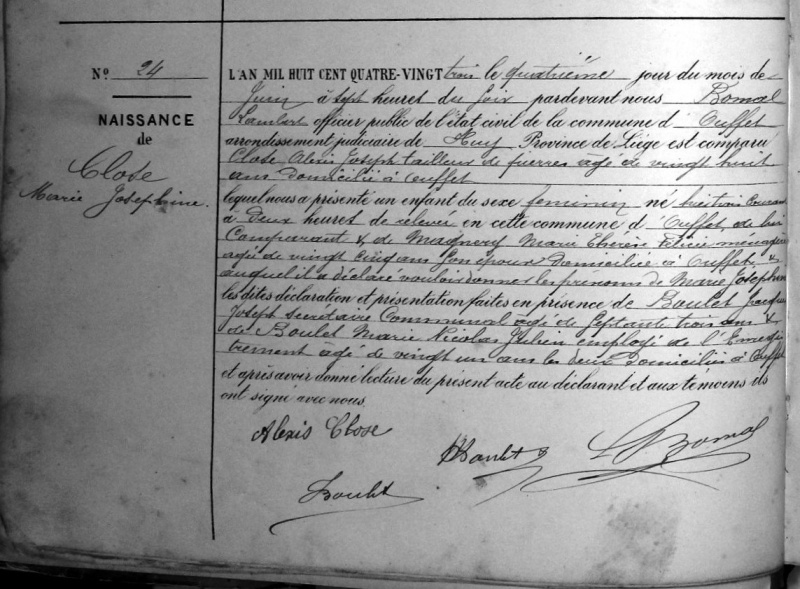 N° 24
NAISSANCE
de
Close
Marie Josephine.
L'AN MIL HUIT CENT QUATRE-VINGT trois le quatrième jour du mois de
Juin à sept heures du soir pardevant nous Bomal
Lambert officier public de l'état civil de la commune d'Ouffet
arrondissement judiciaire de Huy Province de Liége est comparu
Close Alexis Joseph tailleur de pierres agé de vingt huit
ans domicilié à Ouffet
lequel nous a présenté un enfant du sexe feminin né le trois Courant
à deux heures de relevée en cette commune d'Ouffet, de lui
Comparant & de Magnery Marie Thérèse ménagère
agée de vingt cinq ans son epouse domiciliée à Ouffet &
auquel il a déclaré vouloir donner les prénoms de Marie Josephine
les dites déclaration et présentation faites en présence de Boulet Jacques
Joseph secrétaire Communal agé de septante trois ans &
de Boulet Marie Nicolas Julien employé de l'Enregis
trement agé de vingt un ans les deux domiciliés à Ouffet
et après avoir donné lecture du présent acte au déclarant et aux témoins ils
ont signé avec nous
Alexis Close
Boulet
L Bomal
Boulet